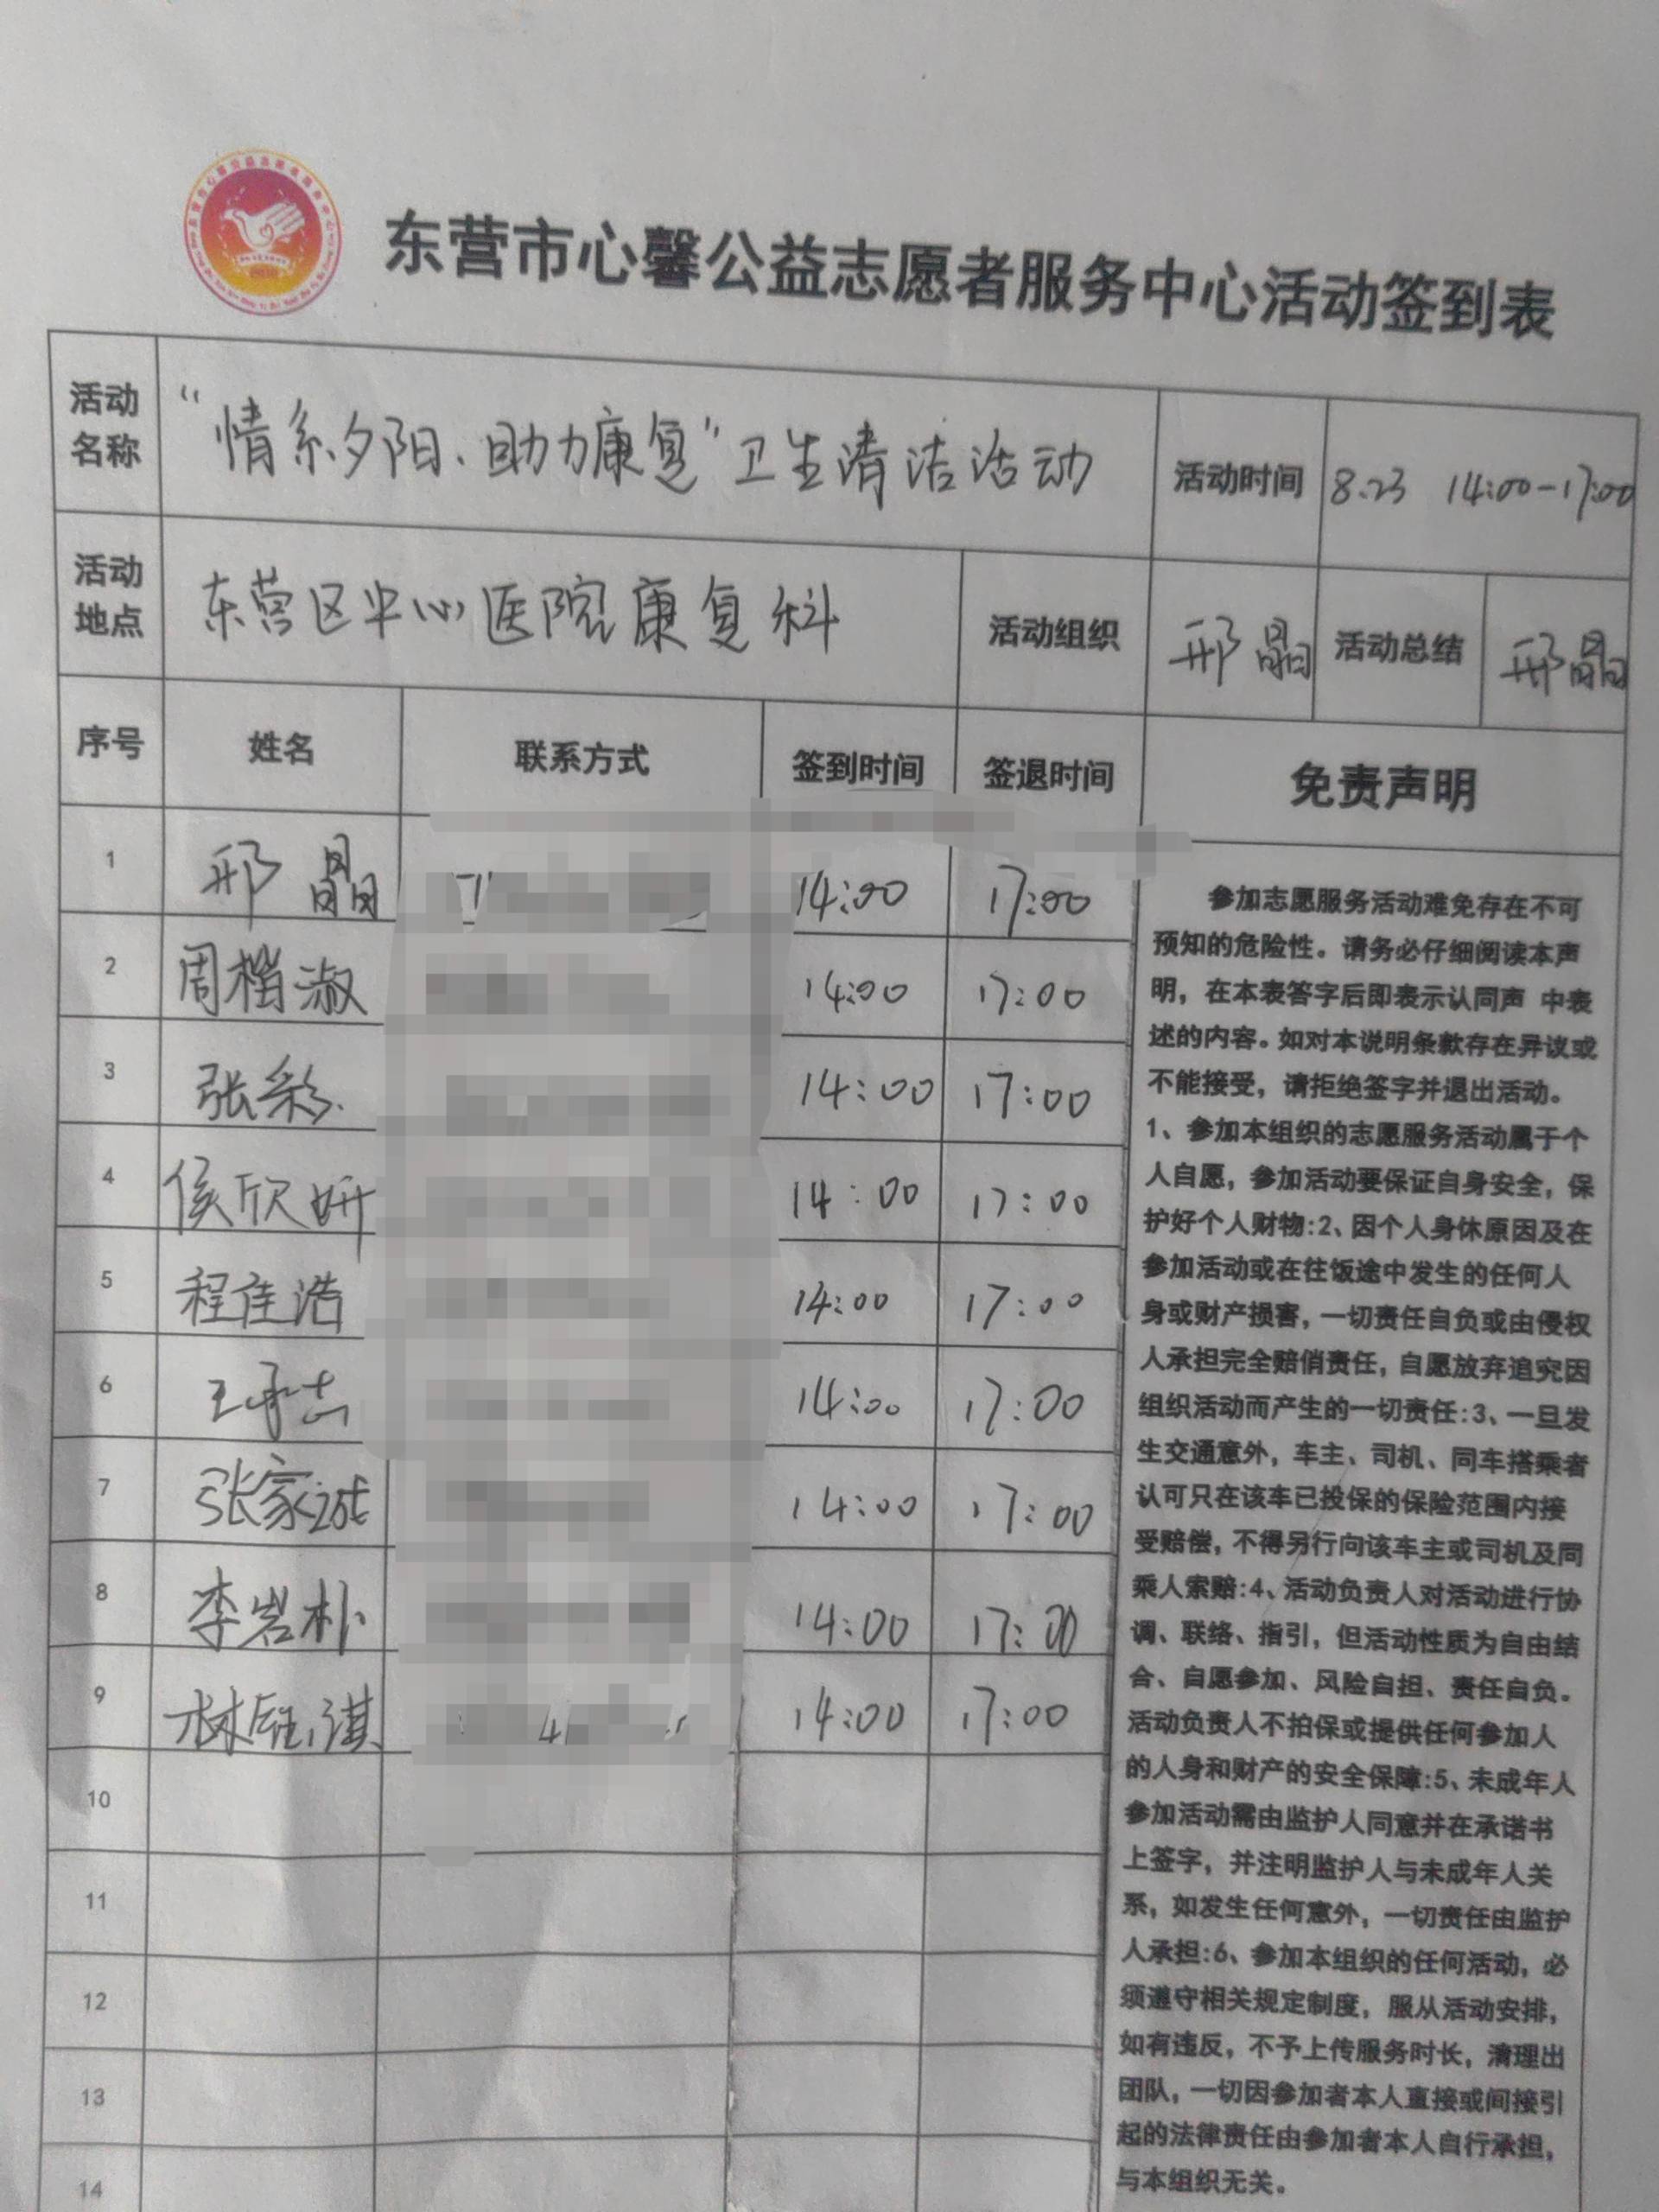 东营市心馨公益志愿者服务中心活动签到表
活动名称 “情系夕阳、助力康复”卫生清洁活动 活动时间 8.23 14:00-17:00
活动地点 东营区中心医院康复科 活动组织 邢晶 活动总结 邢晶
序号 姓名 联系方式 签到时间 签退时间 免责声明
1 邢晶 14:00 17:00
2 周楷淑 14:00 17:00
3 张彩 14:00 17:00
4 侯欣妍 14:00 17:00
5 程佳浩 14:00 17:00
6 王 14:00 17:00
7 张家 14:00 17:00
8 李岩朴 14:00 17:00
9 林钰淇 14:00 17:00
10
11
12
13
14
参加志愿服务活动难免存在不可
预知的危险性。请务必仔细阅读本声
明，在本表答字后即表示认同声 中表
述的内容。如对本说明条款存在异议或
不能接受，请拒绝签字并退出活动。
1、参加本组织的志愿服务活动属于个
人自愿，参加活动要保证自身安全，保
护好个人财物:2、因个人身休原因及在
参加活动或在往饭途中发生的任何人
身或财产损害，一切责任自负或由侵权
人承担完全赔俏责任，自愿放弃追究因
组织活动而产生的一切责任:3、一旦发
生交通意外，车主、司机、同车搭乘者
认可只在该车已投保的保险范围内接
受赔偿，不得另行向该车主或司机及同
乘人索赔:4、活动负责人对活动进行协
调、联络、指引，但活动性质为自由结
合、自愿参加、风险自担、责任自负。
活动负责人不拍保或提供任何参加人
的人身和财产的安全保障:5、未成年人
参加活动需由监护人同意并在承诺书
上签字，并注明监护人与未成年人关
系，如发生任何意外，一切责任由监护
人承担:6、参加本组织的任何活动，必
须遵守相关规定制度，服从活动安排，
如有违反，不予上传服务时长，清理出
团队，一切因参加者本人直接或间接引
起的法律责任由参加者本人自行承担，
与本组织无关。